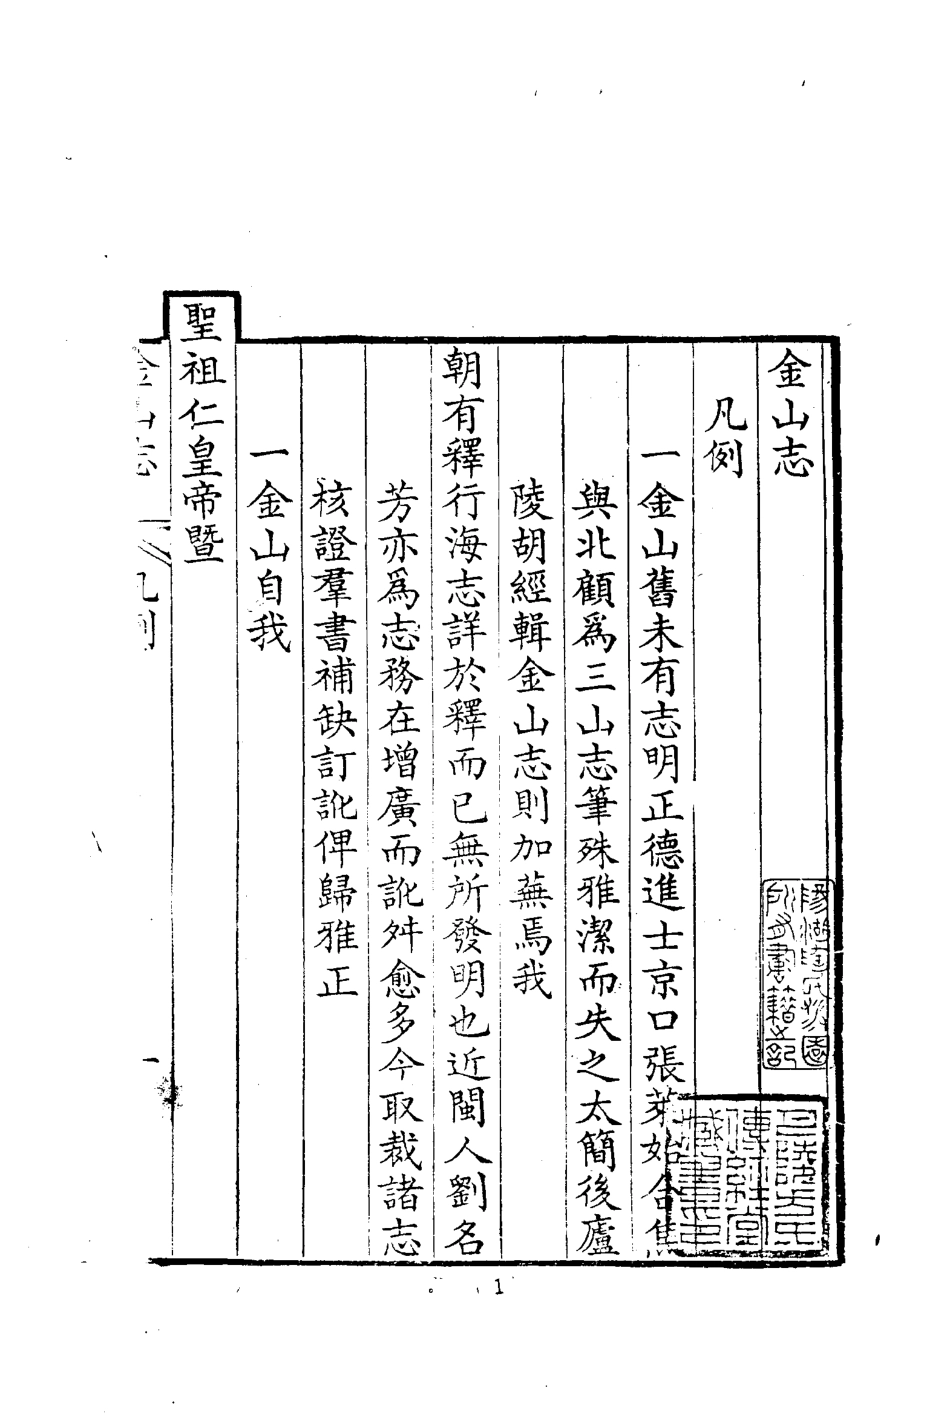 金山志
凡例
一金山舊未有志明正德進士京口張萊始合焦
與北顧爲三山志筆殊雅潔而失之太簡後廬
陵胡經輯金山志則加蕪焉我
朝有釋行海志詳於釋而已無所發明也近閩人劉名
芳亦爲志務在增廣而訛舛愈多今取裁諸志
核證羣書補缺訂訛俾歸雅正
一金山自我
聖祖仁皇帝暨
金山志 凡例 一
1